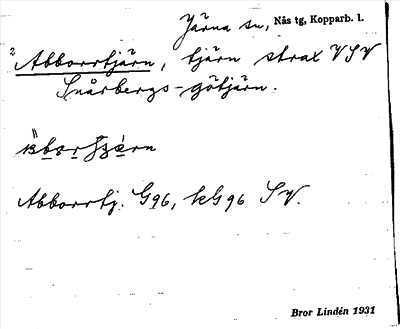 Järna sn, Nås tg, Kopparb. l.
2 Abborrtjärn, tjärn strax VSV
Snårbergs-götjärn.
Abborrtj. G96, kG96 SV.
Bror Lindén 1931